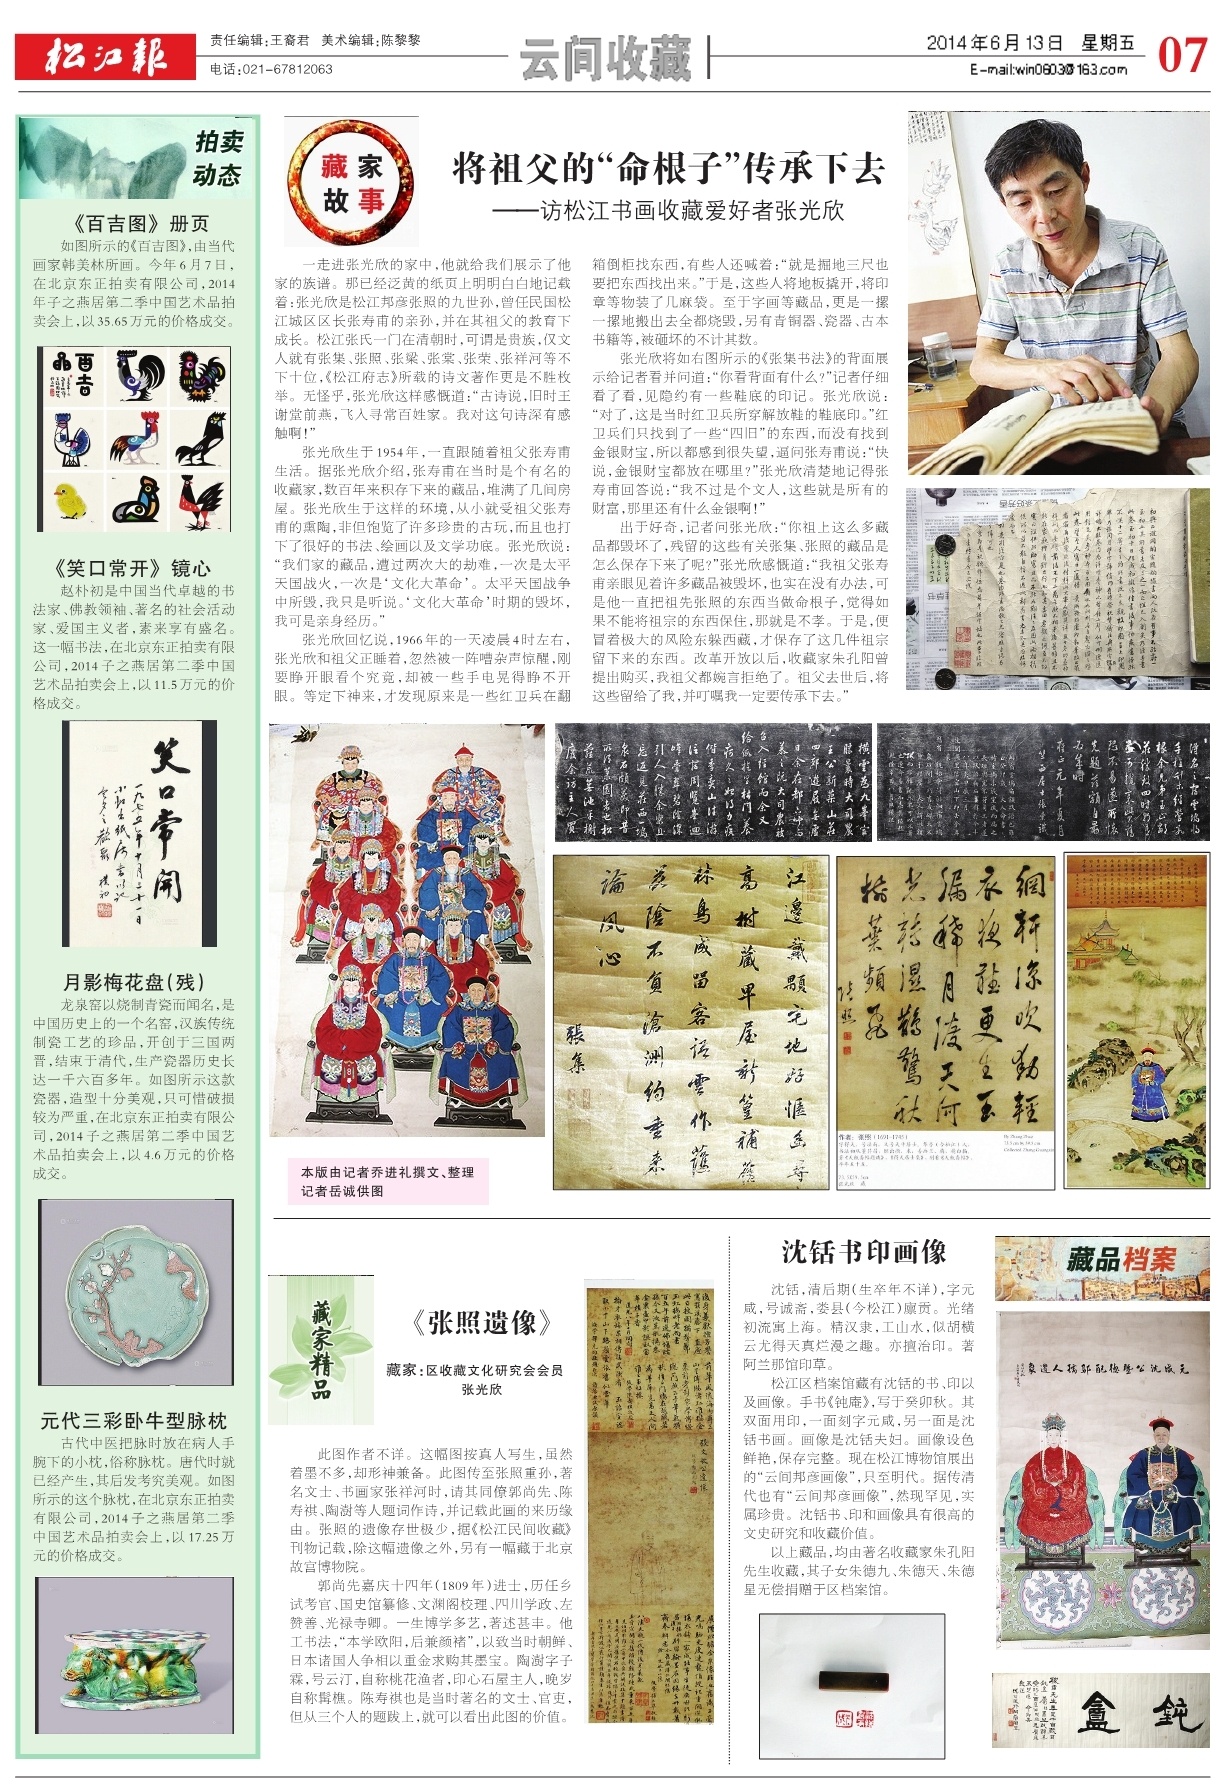 松江報
责任编辑:王裔君 美术编辑:陈黎黎
电话:021-67812063
云间收藏
2014年6月13日 星期五
E-mail:win0603@163.com
07
拍卖
动态
《百吉图》册页
如图所示的《百吉图》,由当代
画家韩美林所画。今年6月7日,
在北京东正拍卖有限公司,2014
年子之燕居第二季中国艺术品拍
卖会上,以35.65万元的价格成交。
《笑口常开》镜心
赵朴初是中国当代卓越的书
法家、佛教领袖、著名的社会活动
家、爱国主义者,素来享有盛名。
这一幅书法,在北京东正拍卖有限
公司,2014子之燕居第二季中国
艺术品拍卖会上,以11.5万元的价
格成交。
笑口常开
月影梅花盘(残)
龙泉窑以烧制青瓷而闻名,是
中国历史上的一个名窑,汉族传统
制瓷工艺的珍品,开创于三国两
晋,结束于清代,生产瓷器历史长
达一千六百多年。如图所示这款
瓷器,造型十分美观,只可惜破损
较为严重,在北京东正拍卖有限公
司,2014子之燕居第二季中国艺
术品拍卖会上,以4.6万元的价格
成交。
元代三彩卧牛型脉枕
古代中医把脉时放在病人手
腕下的小枕,俗称脉枕。唐代时就
已经产生,其后发考究美观。如图
所示的这个脉枕,在北京东正拍卖
有限公司,2014子之燕居第二季
中国艺术品拍卖会上,以17.25万
元的价格成交。
藏家
故事
将祖父的“命根子”传承下去
——访松江书画收藏爱好者张光欣
一走进张光欣的家中,他就给我们展示了他
家的族谱。那已经泛黄的纸页上明明白白地记载
着:张光欣是松江邦彦张照的九世孙,曾任民国松
江城区区长张寿甫的亲孙,并在其祖父的教育下
成长。松江张氏一门在清朝时,可谓是贵族,仅文
人就有张集、张照、张梁、张棠、张荣、张祥河等不
下十位,《松江府志》所载的诗文著作更是不胜枚
举。无怪乎,张光欣这样感慨道:“古诗说,旧时王
谢堂前燕,飞入寻常百姓家。我对这句诗深有感
触啊!”
张光欣生于1954年,一直跟随着祖父张寿甫
生活。据张光欣介绍,张寿甫在当时是个有名的
收藏家,数百年来积存下来的藏品,堆满了几间房
屋。张光欣生于这样的环境,从小就受祖父张寿
甫的熏陶,非但饱览了许多珍贵的古玩,而且也打
下了很好的书法、绘画以及文学功底。张光欣说:
“我们家的藏品,遭过两次大的劫难,一次是太平
天国战火,一次是‘文化大革命’。太平天国战争
中所毁,我只是听说。‘文化大革命’时期的毁坏,
我可是亲身经历。”
张光欣回忆说,1966年的一天凌晨4时左右,
张光欣和祖父正睡着,忽然被一阵嘈杂声惊醒,刚
要睁开眼看个究竟,却被一些手电晃得睁不开
眼。等定下神来,才发现原来是一些红卫兵在翻
箱倒柜找东西,有些人还喊着:“就是掘地三尺也
要把东西找出来。”于是,这些人将地板撬开,将印
章等物装了几麻袋。至于字画等藏品,更是一摞
一摞地搬出去全都烧毁,另有青铜器、瓷器、古本
书籍等,被砸坏的不计其数。
张光欣将如右图所示的《张集书法》的背面展
示给记者看并问道:“你看背面有什么?”记者仔细
看了看,见隐约有一些鞋底的印记。张光欣说:
“对了,这是当时红卫兵所穿解放鞋的鞋底印。”红
卫兵们只找到了一些“四旧”的东西,而没有找到
金银财宝,所以都感到很失望,逼问张寿甫说:“快
说,金银财宝都放在哪里?”张光欣清楚地记得张
寿甫回答说:“我不过是个文人,这些就是所有的
财富,那里还有什么金银啊!”
出于好奇,记者问张光欣:“你祖上这么多藏
品都毁坏了,残留的这些有关张集、张照的藏品是
怎么保存下来了呢?”张光欣感慨道:“我祖父张寿
甫亲眼见着许多藏品被毁坏,也实在没有办法,可
是他一直把祖先张照的东西当做命根子,觉得如
果不能将祖宗的东西保住,那就是不孝。于是,便
冒着极大的风险东躲西藏,才保存了这几件祖宗
留下来的东西。改革开放以后,收藏家朱孔阳曾
提出购买,我祖父都婉言拒绝了。祖父去世后,将
这些留给了我,并叮嘱我一定要传承下去。”
本版由记者乔进礼撰文、整理
记者岳诚供图
藏家精品
《张照遗像》
藏家:区收藏文化研究会会员
张光欣
此图作者不详。这幅图按真人写生,虽然
着墨不多,却形神兼备。此图传至张照重孙,著
名文士、书画家张祥河时,请其同僚郭尚先、陈
寿祺、陶澍等人题词作诗,并记载此画的来历缘
由。张照的遗像存世极少,据《松江民间收藏》
刊物记载,除这幅遗像之外,另有一幅藏于北京
故宫博物院。
郭尚先嘉庆十四年(1809年)进士,历任乡
试考官、国史馆纂修、文渊阁校理、四川学政、左
赞善、光禄寺卿。一生博学多艺,著述甚丰。他
工书法,“本学欧阳,后兼颜褚”,以致当时朝鲜、
日本诸国人争相以重金求购其墨宝。陶澍字子
霖,号云汀,自称桃花渔者,印心石屋主人,晚岁
自称髯樵。陈寿祺也是当时著名的文士、官吏,
但从三个人的题跋上,就可以看出此图的价值。
沈铦书印画像
沈铦,清后期(生卒年不详),字元
咸,号诚斋,娄县(今松江)廪贡。光绪
初流寓上海。精汉隶,工山水,似胡横
云尤得天真烂漫之趣。亦擅治印。著
阿兰那馆印草。
松江区档案馆藏有沈铦的书、印以
及画像。手书《钝庵》,写于癸卯秋。其
双面用印,一面刻字元咸,另一面是沈
铦书画。画像是沈铦夫妇。画像设色
鲜艳,保存完整。现在松江博物馆展出
的“云间邦彦画像”,只至明代。据传清
代也有“云间邦彦画像”,然现罕见,实
属珍贵。沈铦书、印和画像具有很高的
文史研究和收藏价值。
以上藏品,均由著名收藏家朱孔阳
先生收藏,其子女朱德九、朱德天、朱德
星无偿捐赠于区档案馆。
藏品档案